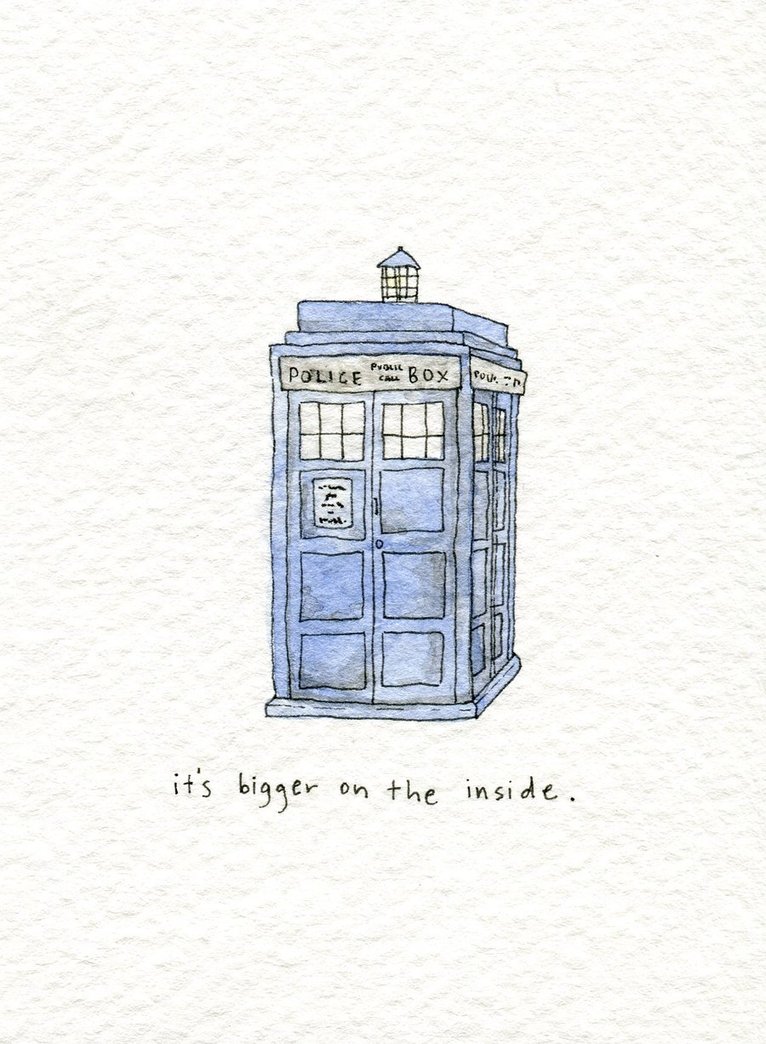 POLICE PUBLIC CALL BOX
it's bigger on the inside.